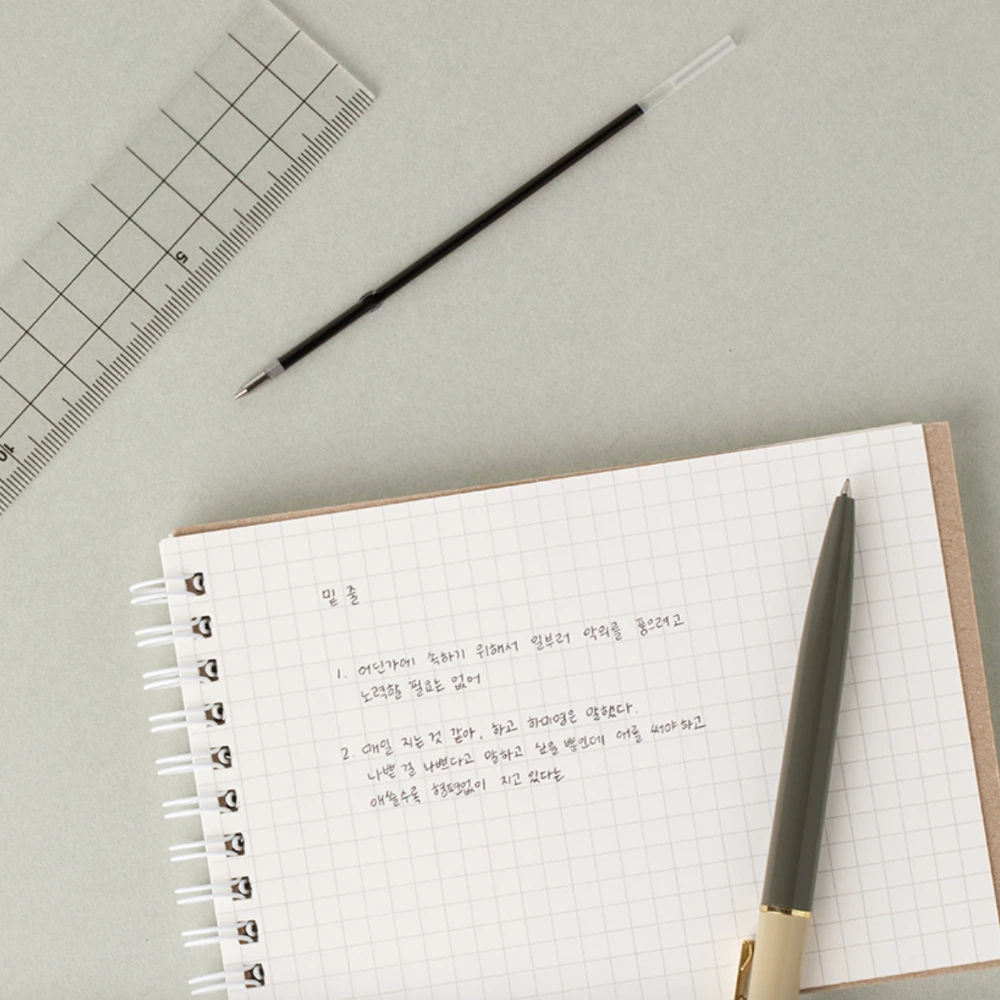 5
10
밑 줄
1. 어딘가에 속하기 위해서 일부러 악의를 품으려고
노력할 필요는 없어
2. 매일 지는 것 같아, 하고 하미영은 말했다.
나쁜 걸 나쁘다고 말하고 싶을 뿐인데 애를 써야 하고
애쓸수록 형편없이 지고 있다는